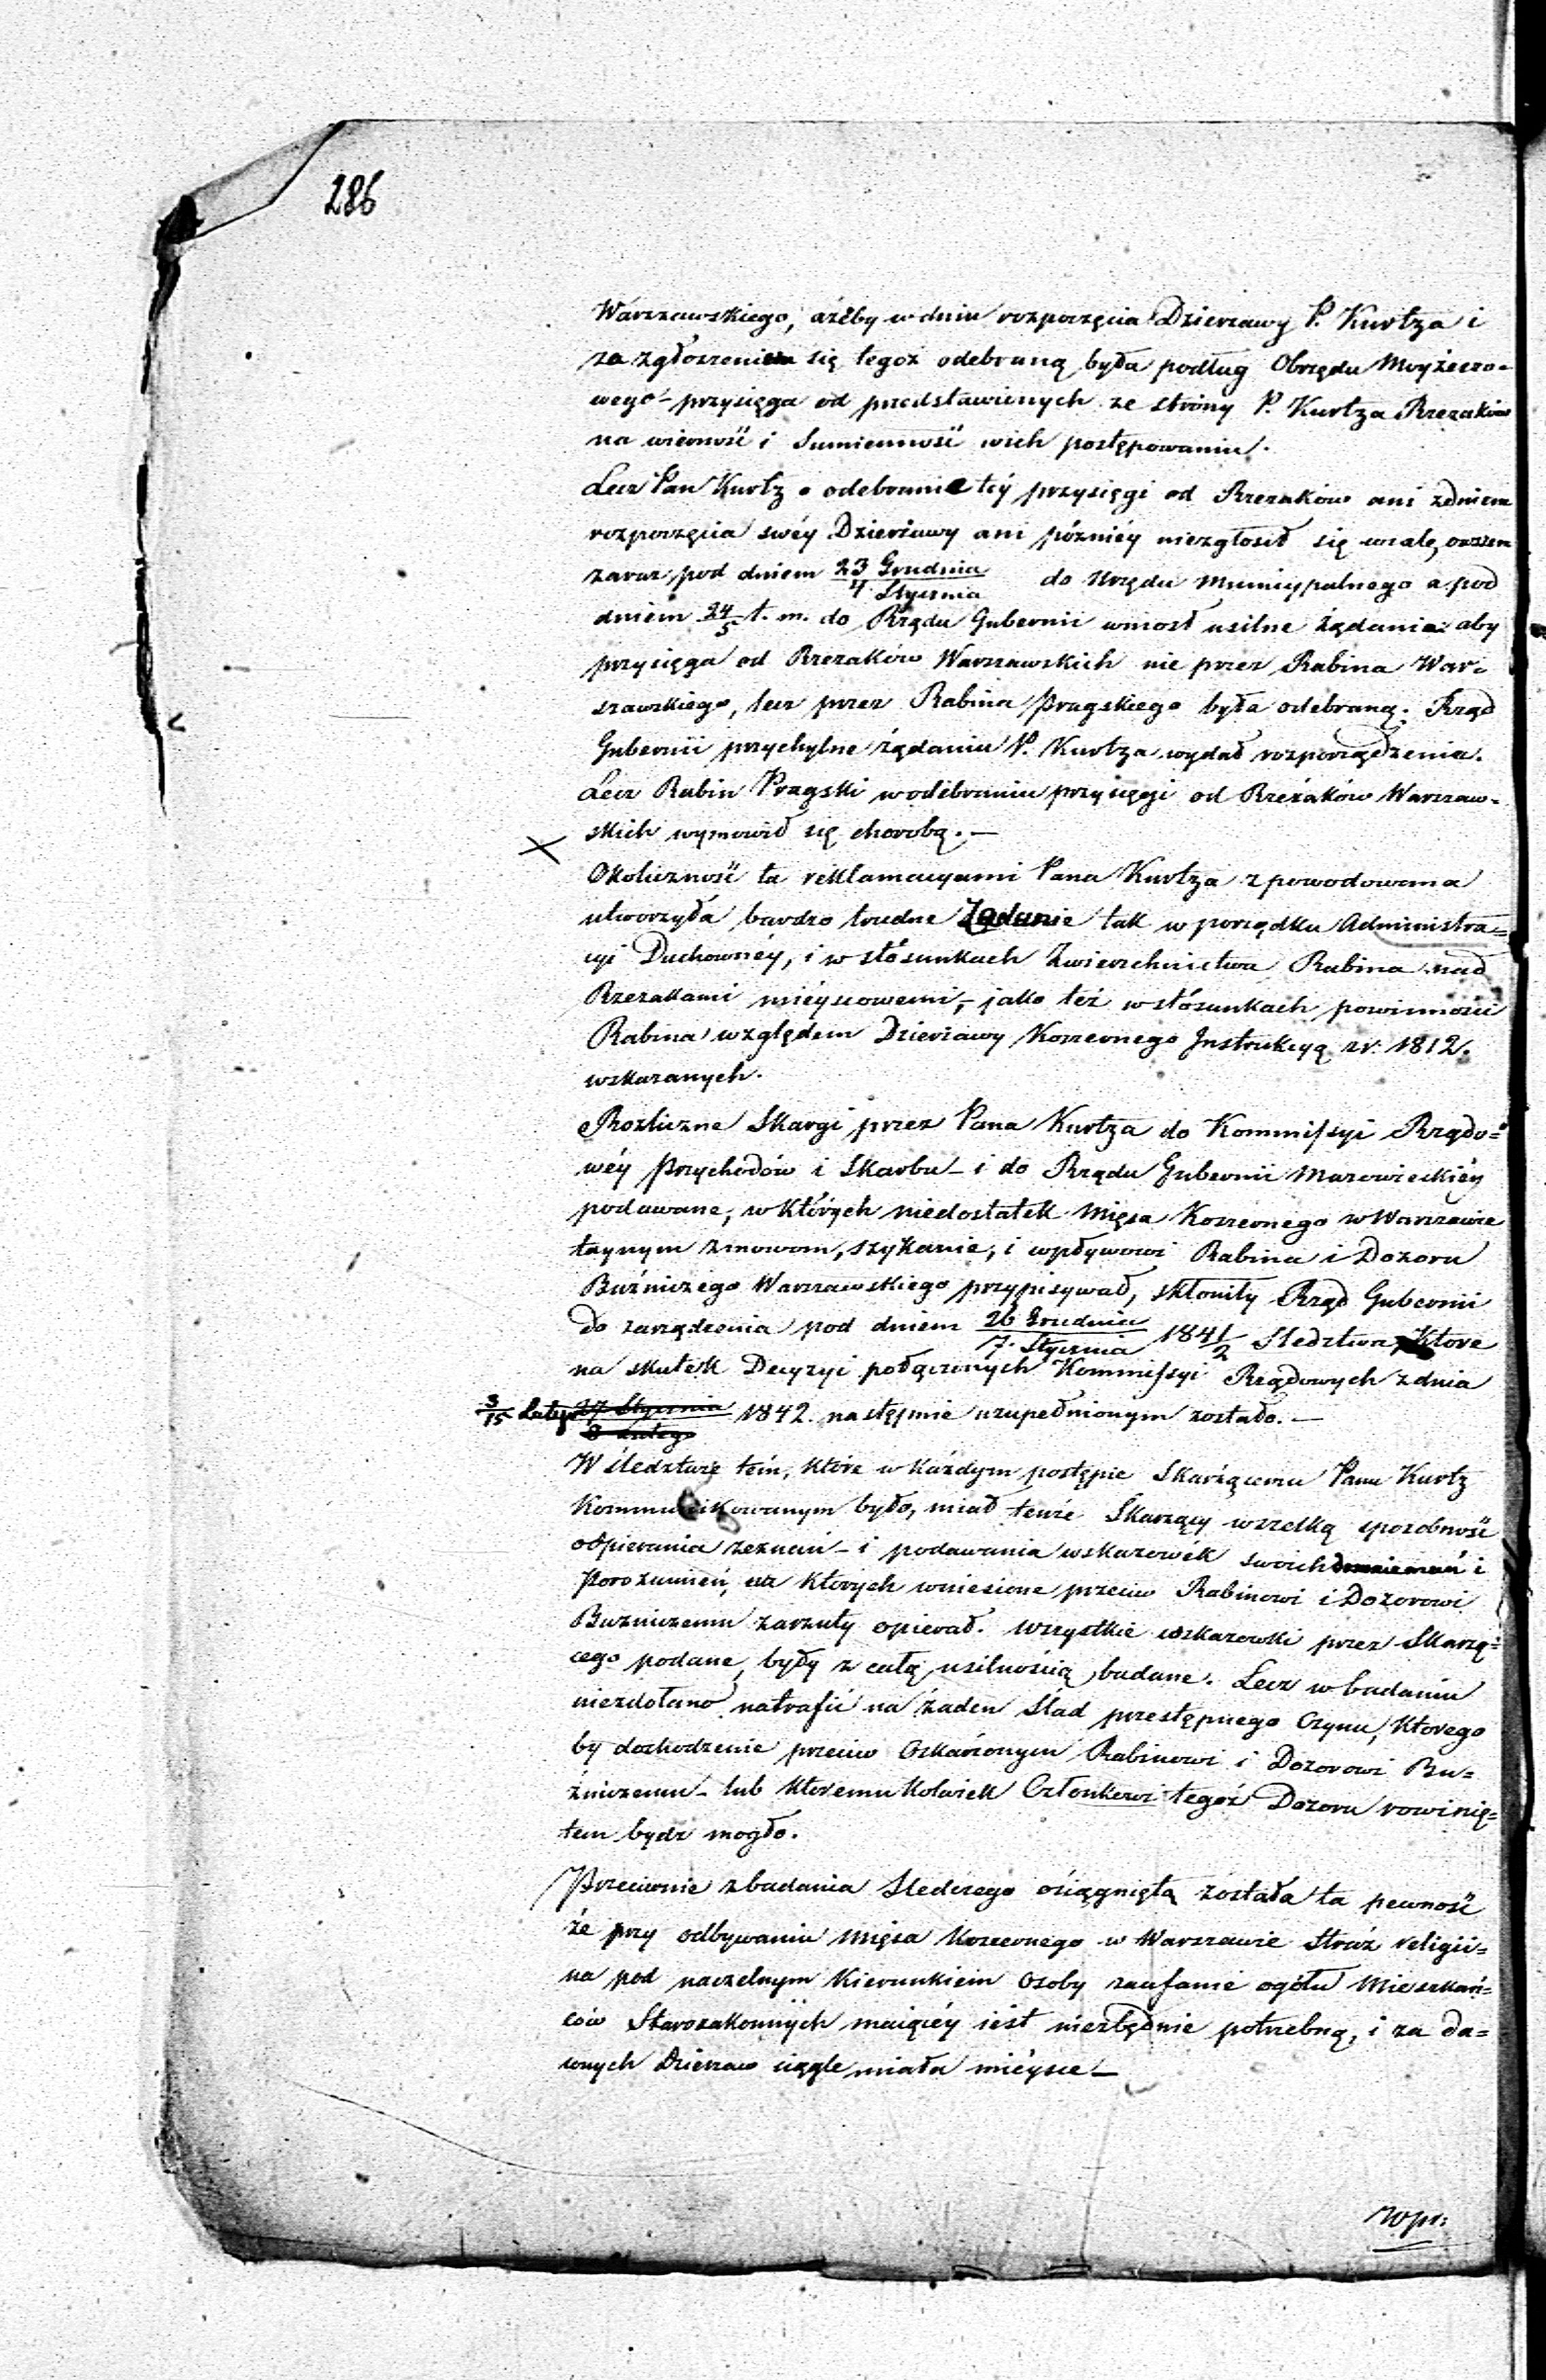 286
Warszawskiego, ażeby w dniu rozpoczęcia Dzierzawy P. Kurtza i
za zgłoszeniem się tegoż odebraną była podług Obrzędu Moyżeszo=
wego - przysięga od przedstawionych ze strony P. Kurtza Rzezaków
na wierność i Sumienność w ich postępowaniu.
Lecz Pan Kurtz o odebranie téy przysięgi od Rzezaków ani z dniem
rozpoczęcia swéy Dzierżawy ani późniéy niezgłosił się wcale, owszem
zaraz pod dniem 23 Grudnia / 4 Stycznia do Urzędu Municypalnego a pod
dniem 24/5 t. m. do Rządu Gubernii wniosł usilne żądania aby
przysięga od Rzezaków Warszawskich nie przez Rabina War=
szawskiego, lecz przez Rabina Pragskiego była odebraną. Rząd
Gubernii przychylne żądaniu P. Kurtza wydał rozporządzenia.
Lecz Rabin Pragski w odebraniu przysięgi od Rzezaków Warszaw=
skich wymowił się chorobą. —
Okoliczność ta reklamacyami Pana Kurtza z powodowana
utworzyła bardzo trudne Zadanie tak w porządku Administra=
cyi Duchownéy, i w stósunkach Zwierzchnictwa Rabina nad
Rzezakami miéyscowemi, - jako też w stósunkach powinności
Rabina względem Dzierżawy Koszernego Instrukcyą z r. 1812.
wskazanych.
Rozliczne Skargi przez Pana Kurtza do Kommissyi Rządo=
wéy Przychodów i Skarbu - i do Rządu Gubernii Mazowieckiéy
podawane, w których niedostatek Mięsa Koszernego w Warszawie
taynym zmowom, szykanie, i wpływowi Rabina i Dozoru
Buźniczego Warszawskiego przypisywał, skłoniły Rząd Gubernii
do zarządzenia pod dniem 26 Grudnia / 7. Stycznia 1841/2 Sledztwa, które
na skutek Decyzyi połączonych Kommissyi Rządowych z dnia
3/15 Lutego 27 Stycznia / 8 Lutego 1842. następnie uzupełnionym zostało. —
W śledztwie tém, które w każdym postępie Skarżącemu Panu Kurtz
kommunikowanym było, miał tenże Skarżący wszelką sposobność
odpierania zeznań - i podawania wskazowék swoich domniemań i
Porozumień, na których wniesione przeciw Rabinowi i Dozorowi
Buzniczemu zarzuty opierał. Wszystkie wskazowki przez Skarżą=
cego podane, były z całą usilnością badane. Lecz w badaniu
niezdołano natrafić na żaden Slad przestępnego Czynu, którego
by dochodzenie przeciw Oskarżonym Rabinowi i Dozorowi Bu=
żniczemu - lub któremukolwiek Członkowi tegoż Dozoru rowinię=
tem bydz mogło.
Przeciwnie z badania Sledczego osiągniętą została ta pewność
że przy odbywaniu Mięsa Koszernego w Warszawie Straż religii=
na pod naczelnym Kierunkiem Osoby zaufanie ogółu Mieszkań=
ców Starozakonnych maiącéy iést niezbędnie potrzebną, i za da=
wnych Dzierzaw ciągle miała miéysce —